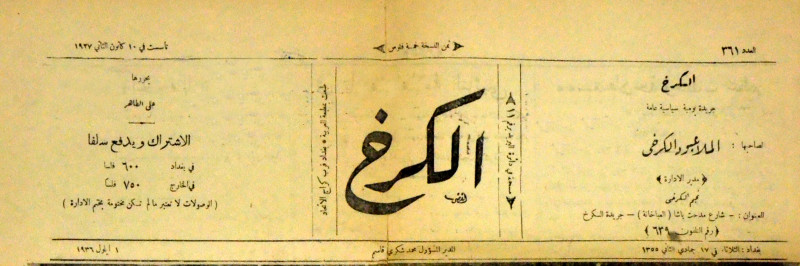 العدد ٣٦١
ثمن النسخة خمسة فلوس
تأسست في ١٠ كانون الثاني ١٩٢٧
الكرخ
جريدة يومية سياسية عامة
صاحبها : الملا عبود الكرخي
﴿ مدير الادارة ﴾
نجم الكرخي
العنوان : – شارع مدحت باشا ( العباخانة ) – جريدة الكرخ
﴿ رقم التلفون ٦٣٩ ﴾
مسجلة في دائرة البريد برقم ١١
الكرخ
طبعت بمطبعة العربية * بغداد قرب كراج الاتحاد
يحررها
علي الظاهر
الاشتراك ويدفع سلفا
في بغداد ٦٠٠ فلسا
في الخارج ٧٥٠ فلسا
( الوصولات لا تعتبر مالم تكن مختومة بختم الادارة )
بغداد : الثلاثاء في ١٧ جمادي الثاني ١٣٥٥
المدير المسؤول محمد شكري قاسم
١ ايلول ١٩٣٦